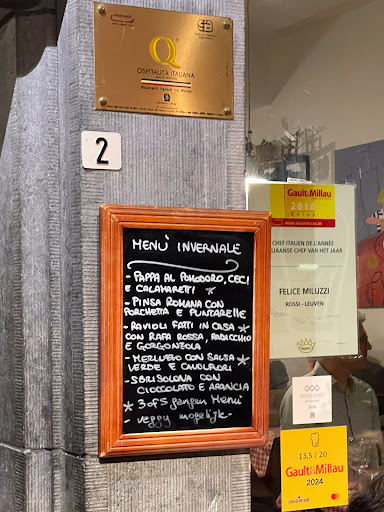 Q
OSPITALITÀ ITALIANA
2
MENÙ INVERNALE
- PAPPA AL POMODORO, CECI
E CALAMARETI *
- PINSA ROMANA CON
PORCHETTA E PUNTARELLE
- RAVIOLI FATTI IN CASA *
CON RAPA ROSSA, RADICCHIO
E GORGONZOLA
- MERLUZZO CON SALSA *
VERDE E CAVOLFIORI
- SBRISOLONA CON
CIOCCOLATO E ARANCIA
* 3 of 5 gangen Menù
veggy mogelijk -
Gault&Millau
2010
CHEF ITALIEN DE L'ANNÉE
ITALIAANSE CHEF VAN HET JAAR
FELICE MILUZZI
ROSSI - LEUVEN
13,5 | 20
Gault&Millau
2024